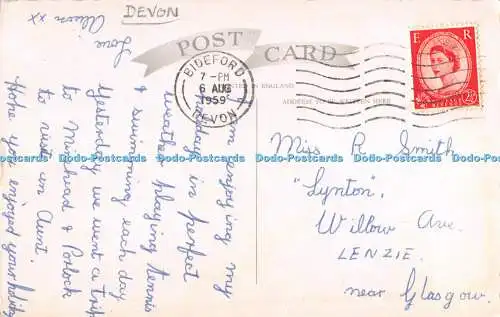 DEVON
POST CARD
PRINTED IN ENGLAND
ADDRESS TO BE WRITTEN HERE
BIDEFORD
7-PM
6 AUG
1959
DEVON
E R
I am enjoying my
holiday in perfect
weather playing tennis
& swimming each day.
Yesterday we went a trip
to Minehead & Porlock
to visit an Aunt.
Hope you enjoyed your holiday
Love
Alison xx
Miss R Smith
"Lynton",
Willow Ave.
LENZIE.
near Glasgow.
www.Delboys-Postcards.com